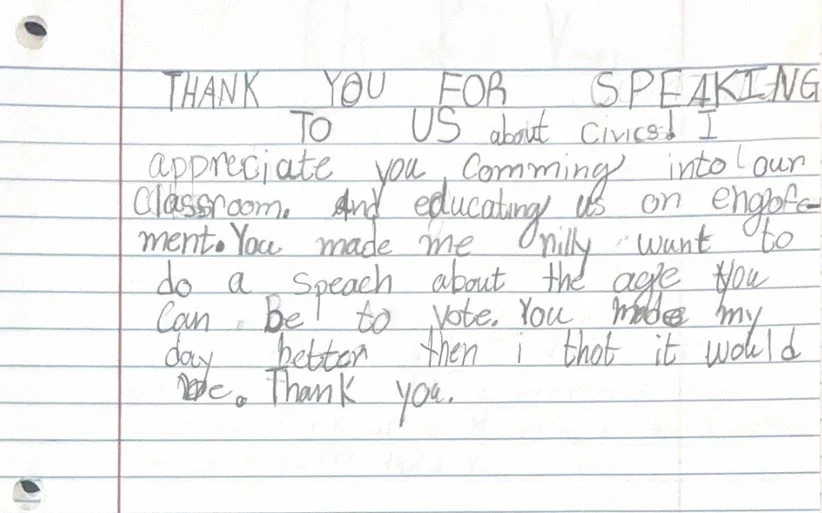 THANK YOU FOR SPEAKING
TO US about civics! I
appreciate you Comming into our
Classroom. And educating us on engofe-
ment. You made me rilly want to
do a speach about the age you
Can Be to vote. You made my
day better then i thot it would
be. Thank you.